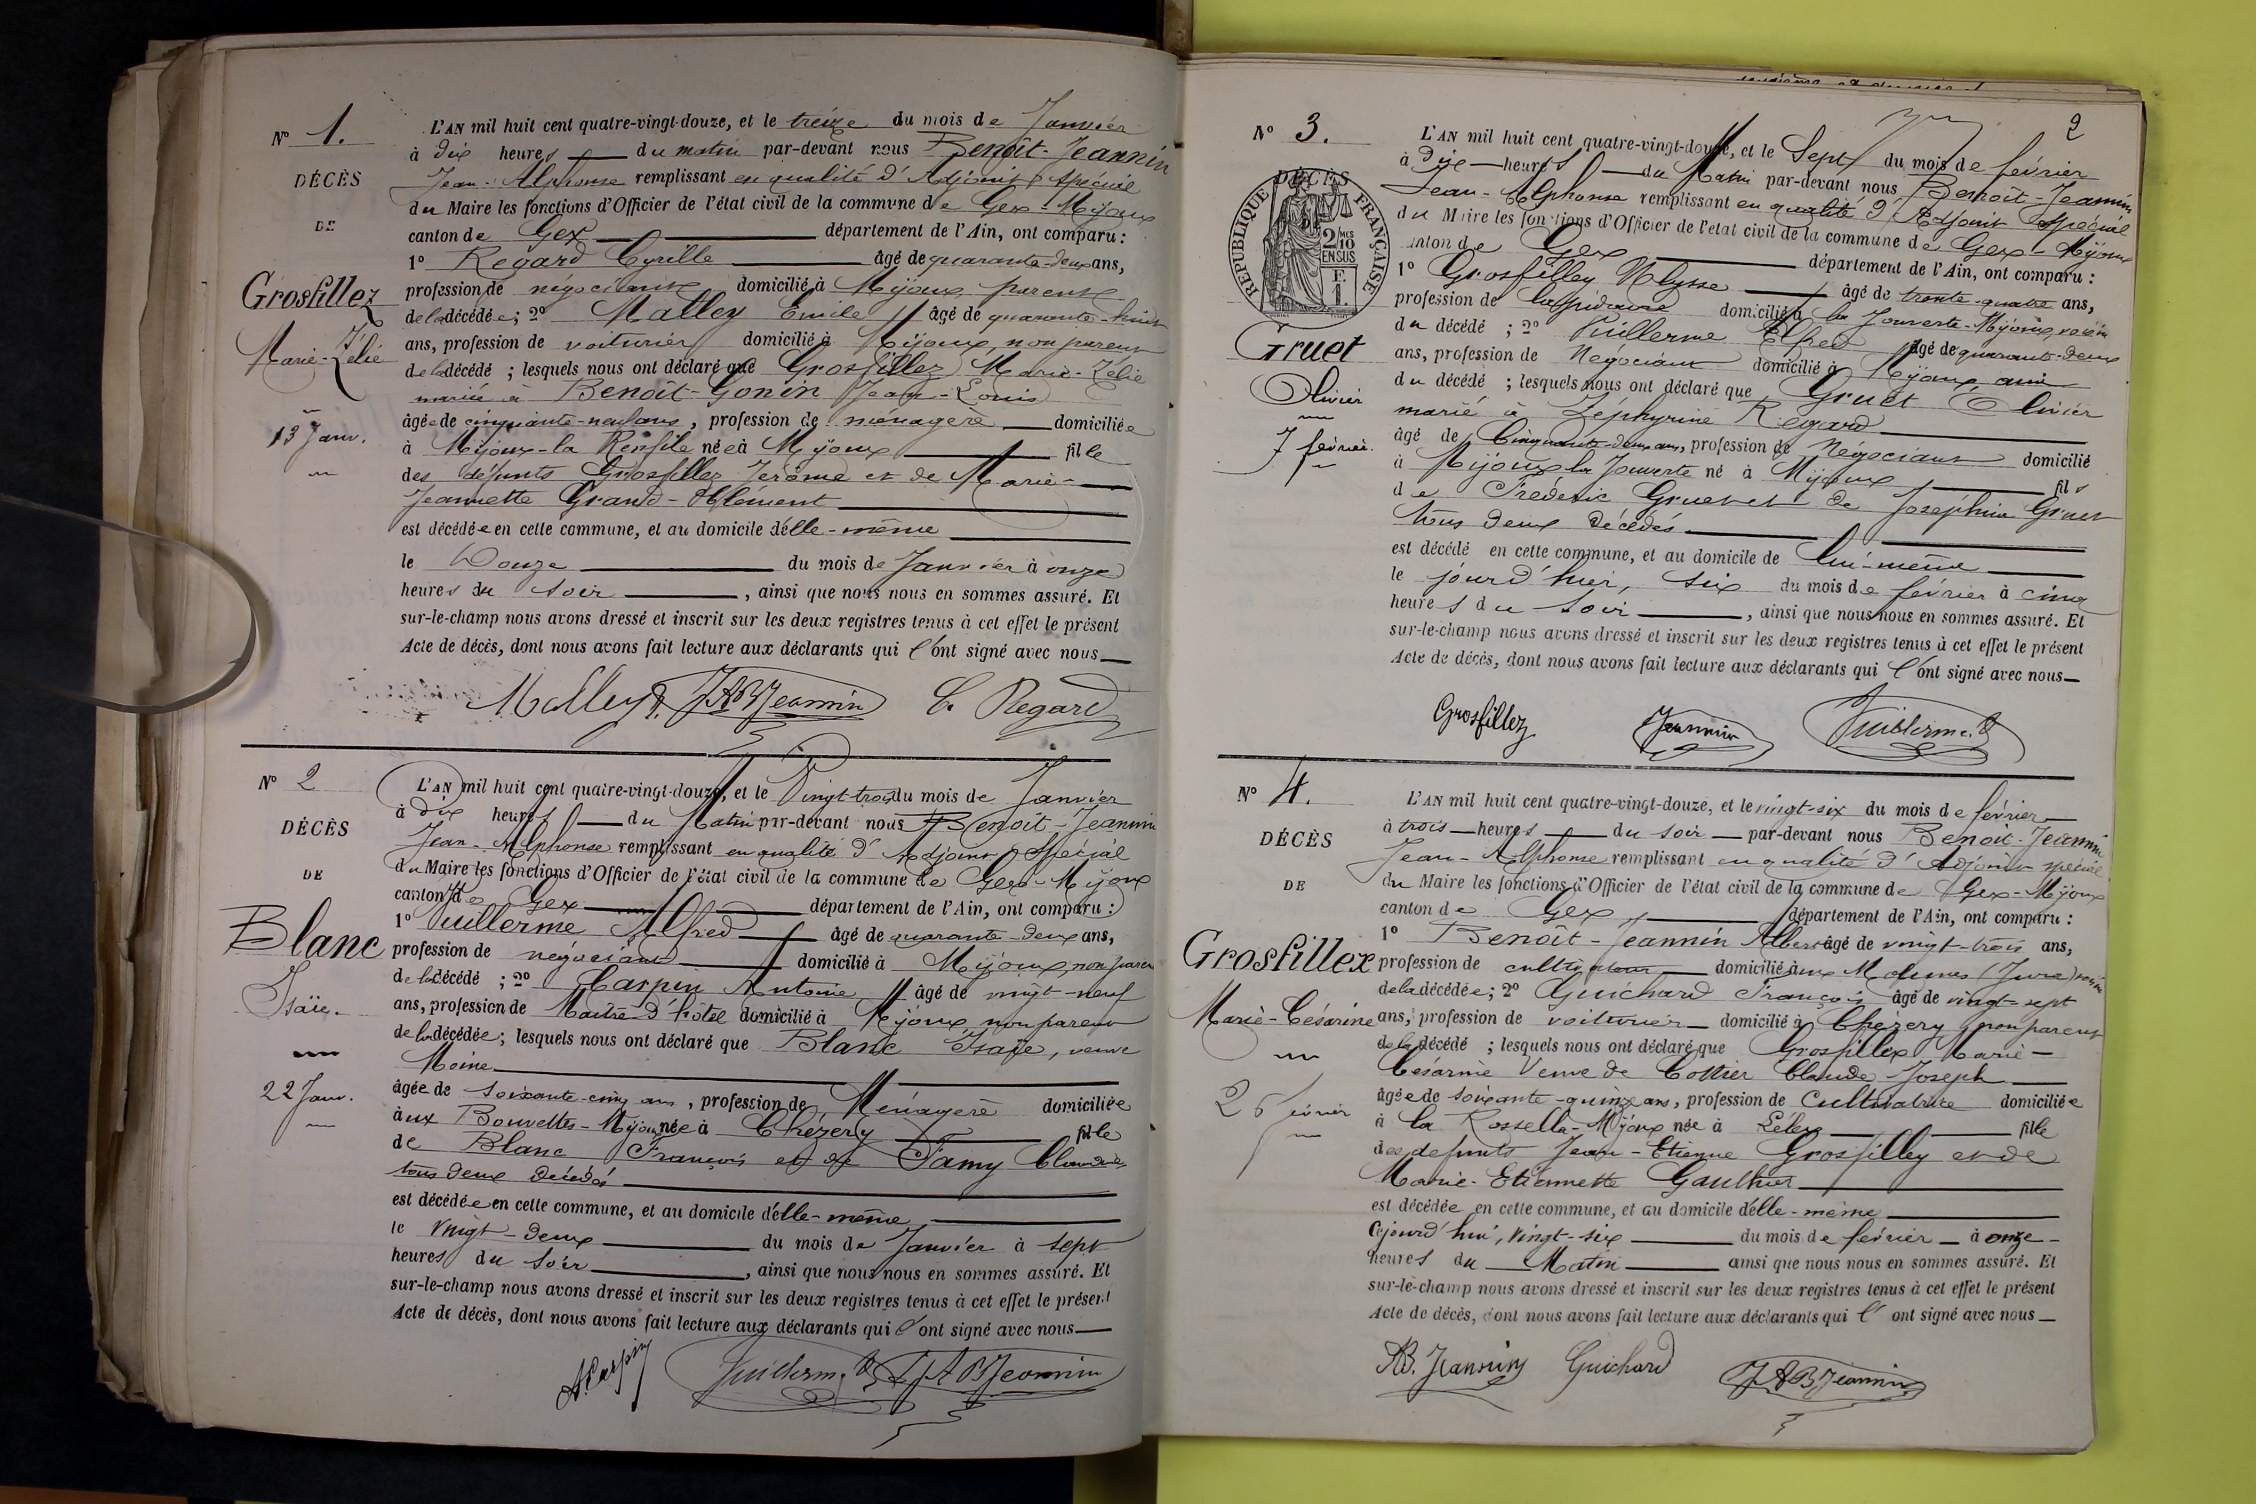 N° 1.
DÉCÈS
DE
Grosfillez
Marie-Zélie
13 Janv.
L'AN mil huit cent quatre-vingt-douze, et le treize du mois de Janvier
à dix heures du matin par-devant nous Benoit-Jeannin
Jean-Alphonse remplissant en qualité d'Adjoint spécial
du Maire les fonctions d'Officier de l'état civil de la commune de Gex-Mijoux
canton de Gex département de l'Ain, ont comparu :
1° Regard Cyrille âgé de quarante-deux ans,
profession de négociant domicilié à Mijoux, parent
de la décédée ; 2° Malley Emile âgé de quarante-huit
ans, profession de voiturier domicilié à Mijoux, non parent
de la décédé ; lesquels nous ont déclaré que Grosfillez Marie-Zélie
mariée à Benoit-Gonin Jean-Louis
âgée de cinquante-neuf ans, profession de ménagère domiciliée
à Mijoux-la née à Mijoux fille
des défunts Grosfillez Jérôme et de Marie-
Jeannette Grand-Clément
est décédée en cette commune, et au domicile d'elle-même
le Douze du mois de Janvier à onze
heures du soir, ainsi que nous nous en sommes assuré. Et
sur-le-champ nous avons dressé et inscrit sur les deux registres tenus à cet effet le présent
Acte de décès, dont nous avons fait lecture aux déclarants qui l'ont signé avec nous
Malley JABJeannin C. Regard
N° 2
DÉCÈS
DE
Blanc
Isaïe.
22 Janv.
L'AN mil huit cent quatre-vingt-douze, et le Vingt-trois du mois de Janvier
à dix heures du Matin par-devant nous Benoit-Jeannin
Jean-Alphonse remplissant en qualité d'Adjoint spécial
du Maire les fonctions d'Officier de l'état civil de la commune de Gex-Mijoux
canton de Gex département de l'Ain, ont comparu :
1° Vuillerme Alfred âgé de quarante-deux ans,
profession de négociant domicilié à Mijoux, non parent
de la décédé ; 2° Carpin Antoine âgé de vingt-neuf
ans, profession de Maître d'hôtel domicilié à Mijoux, non parent
de la décédée ; lesquels nous ont déclaré que Blanc Isaïe, veuve
Moine
âgée de soixante-cinq ans, profession de Ménagère domiciliée
aux Bouvettes-Mijoux née à Chézery fille
de Blanc François et de Famy Claudine
tous deux décédés
est décédée en cette commune, et au domicile d'elle-même
le vingt-deux du mois de Janvier à sept
heures du soir, ainsi que nous nous en sommes assuré. Et
sur-le-champ nous avons dressé et inscrit sur les deux registres tenus à cet effet le présent
Acte de décès, dont nous avons fait lecture aux déclarants qui l'ont signé avec nous
A. Carpin Vuillerme JABJeannin
2
N° 3.
DÉCÈS
RÉPUBLIQUE FRANÇAISE
2/10 MES
EN SUS
F 1.
Gruet
Olivier
7 février.
L'AN mil huit cent quatre-vingt-douze, et le Sept du mois de février
à dix heures du Matin par-devant nous Benoit-Jeannin
Jean-Alphonse remplissant en qualité d'Adjoint spécial
du Maire les fonctions d'Officier de l'état civil de la commune de Gex-Mijoux
canton de Gex département de l'Ain, ont comparu :
1° Grosfilley Ulysse âgé de trente-quatre ans,
profession de lapidaire domicilié à la Jouverte-Mijoux, voisin
du décédé ; 2° Vuillerme Alfred âgé de quarante-deux
ans, profession de Négociant domicilié à Mijoux, ami
du décédé ; lesquels nous ont déclaré que Gruet Olivier
marié à Zéphyrine Regard
âgé de Cinquante-deux ans, profession de Négociant domicilié
à Mijoux la Jouverte né à Mijoux fils
de Fréderic Gruet et de Joséphine Gruet
tous deux décédés
est décédé en cette commune, et au domicile de lui-même
le jourd'hier, six du mois de février à cinq
heures du soir, ainsi que nous nous en sommes assuré. Et
sur-le-champ nous avons dressé et inscrit sur les deux registres tenus à cet effet le présent
Acte de décès, dont nous avons fait lecture aux déclarants qui l'ont signé avec nous
Grosfillez Jeannin Vuillerme
N° 4.
DÉCÈS
DE
Grosfillex
Marie-Césarine
26 février
L'AN mil huit cent quatre-vingt-douze, et le vingt-six du mois de février
à trois heures du soir par-devant nous Benoit-Jeannin
Jean-Alphonse remplissant en qualité d'Adjoint spécial
du Maire les fonctions d'Officier de l'état civil de la commune de Gex-Mijoux
canton de Gex département de l'Ain, ont comparu :
1° Benoît-Jeannin Albert âgé de vingt-trois ans,
profession de cultivateur domicilié aux Molunes (Jura) voisin
de la décédée ; 2° Guichard François âgé de vingt-sept
ans, profession de voiturier domicilié à Chézery, non parent
de la décédé ; lesquels nous ont déclaré que Grosfillex Marie-
Césarine Veuve de Cottier Claude-Joseph
âgée de soixante-quinze ans, profession de Cultivatrice domiciliée
à la Rossella-Mijoux née à Lélex fille
des defunts Jean-Etienne Grosfilley et de
Marie-Etiennette Gauthier
est décédée en cette commune, et au domicile d'elle-même
Cejourd'hui, vingt-six du mois de février à onze
heures du Matin ainsi que nous nous en sommes assuré. Et
sur-le-champ nous avons dressé et inscrit sur les deux registres tenus à cet effet le présent
Acte de décès, dont nous avons fait lecture aux déclarants qui l'ont signé avec nous
AB. Jeannin Guichard JABJeannin